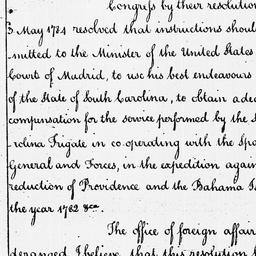 Congress by their resolution
3 May 1784 resolved that instructions shoul
-mitted to the Minister of the United States
Court of Madrid, to use his best endeavours
of the State of South Carolina, to obtain ade
compensation for the service performed by the S
-rolina Frigate in co-operating with the Spa
General and Forces, in the expedition again
reduction of Providence and the Bahama Is
the year 1782 &ca.
The office of foreign affair
deranged I believe that this resolution